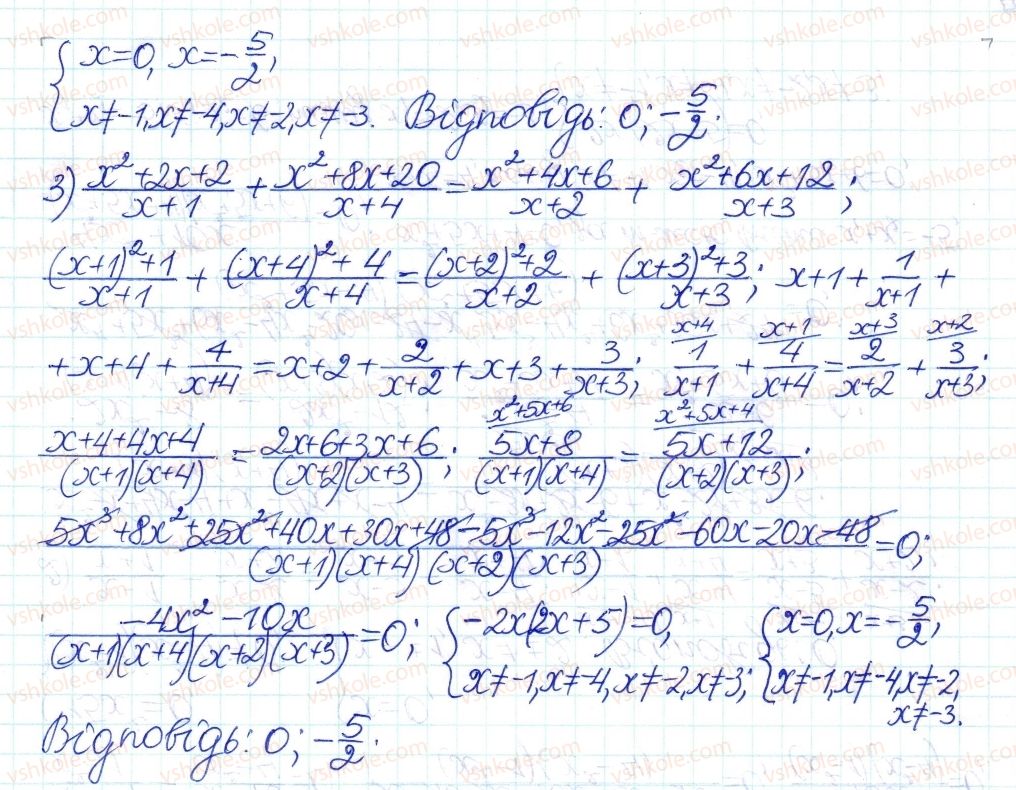 { x=0, x=-5/2,
{ x≠-1, x≠-4, x≠-2, x≠-3. Відповідь: 0; -5/2.
3) (x²+2x+2)/(x+1) + (x²+8x+20)/(x+4) = (x²+4x+6)/(x+2) + (x²+6x+12)/(x+3);
((x+1)²+1)/(x+1) + ((x+4)²+4)/(x+4) = ((x+2)²+2)/(x+2) + ((x+3)²+3)/(x+3); x+1+1/(x+1) +
+x+4+4/(x+4) = x+2+2/(x+2)+x+3+3/(x+3); x+4/ 1/(x+1) + x+1/ 4/(x+4) = x+3/ 2/(x+2) + x+2/ 3/(x+3);
(x+4+4x+4)/((x+1)(x+4)) = (2x+6+3x+6)/((x+2)(x+3)); x²+5x+6/ (5x+8)/((x+1)(x+4)) = x²+5x+4/ (5x+12)/((x+2)(x+3));
(5x³+8x²+25x²+40x+30x+48-5x³-12x²-25x²-60x-20x-48)/((x+1)(x+4)(x+2)(x+3)) =0;
(-4x²-10x)/((x+1)(x+4)(x+2)(x+3)) =0; { -2x(2x+5)=0, { x=0, x=-5/2,
x≠-1, x≠-4, x≠-2, x≠3; x≠-1, x≠-4, x≠-2,
x≠-3.
Відповідь: 0; -5/2.